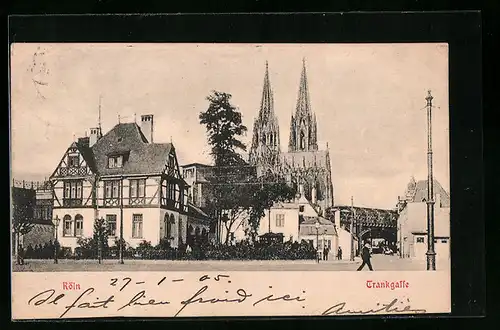 Köln
Trankgasse
27-1-05
Il fait bien froid ici
Amitiés